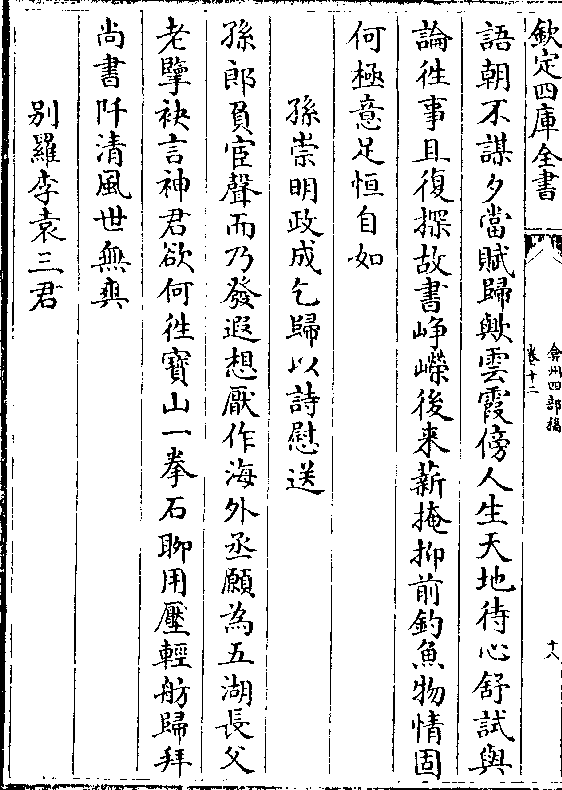 欽定四庫全書
弇州四部稿
卷十二
十八
語朝不謀夕當賦歸歟雲霞傍人生天地待心舒試與
論徃事且復探故書崢嶸後来薪掩抑前釣魚物情固
何極意足恒自如
孫崇明政成乞歸以詩慰送
孫郎負宦聲而乃發遐想厭作海外丞願為五湖長父
老擥袂言神君欲何徃寳山一拳石聊用壓輕舫歸拜
尚書阡清風世無爽
別羅李袁三君